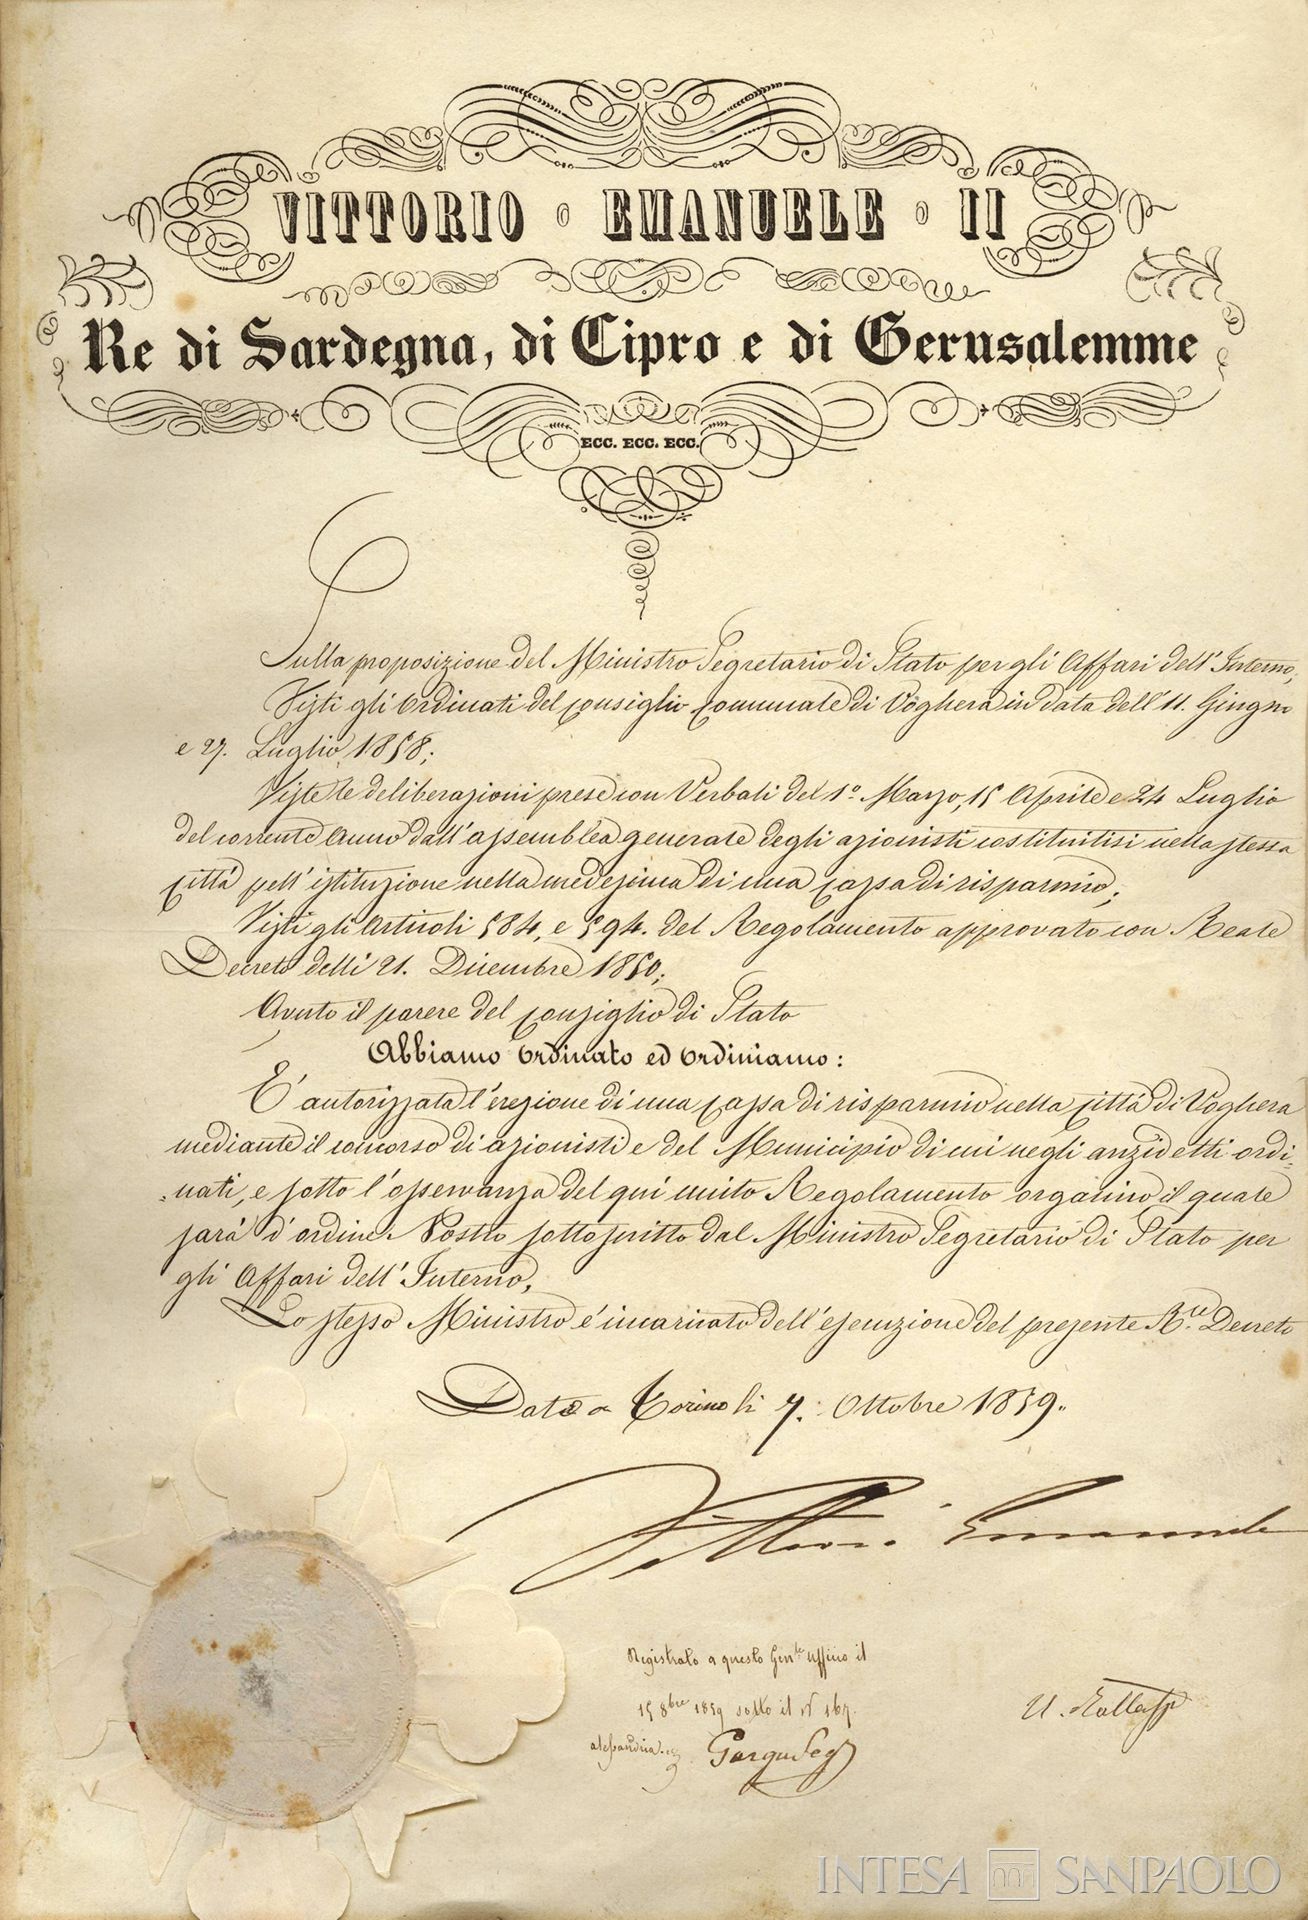 VITTORIO EMANUELE II
Re di Sardegna, di Cipro e di Gerusalemme
ECC. ECC. ECC.
Sulla proposizione del Ministro Segretario di Stato per gli Affari dell'Interno,
Visti gli Ordinati del Consiglio Comunale di Voghera in data dell'11. Giugno
e 27. Luglio 1858;
Viste le deliberazioni prese con Verbali del 1º. Marzo, 15 Aprile e 24 Luglio
del corrente Anno dall'assemblea generale degli azionisti costituitisi nella stessa
Città pell'istituzione nella medesima di una Cassa di risparmio;
Visti gli Articoli 584, e 594. del Regolamento approvato con Reale
Decreto delli 21. Dicembre 1850;
Avuto il parere del Consiglio di Stato
Abbiamo Ordinato ed Ordiniamo:
E' autorizzata l'erezione di una Cassa di risparmio nella Città di Voghera
mediante il concorso di azionisti e del Municipio di cui negli anzidetti ordi-
-nati, e sotto l'osservanza del qui unito Regolamento organico, il quale
sarà d'ordine Nostro sottoscritto dal Ministro Segretario di Stato per
gli Affari dell'Interno.
Lo stesso Ministro è incaricato dell'esecuzione del presente R.le Decreto
Dato a Torino li 7. Ottobre 1859.
Vittorio Emanuele
Registrato a questo Gen.le Uffico il
15 8bre 1859 sotto il N 167.
Alessandria
U. Rattazzi
INTESA SANPAOLO